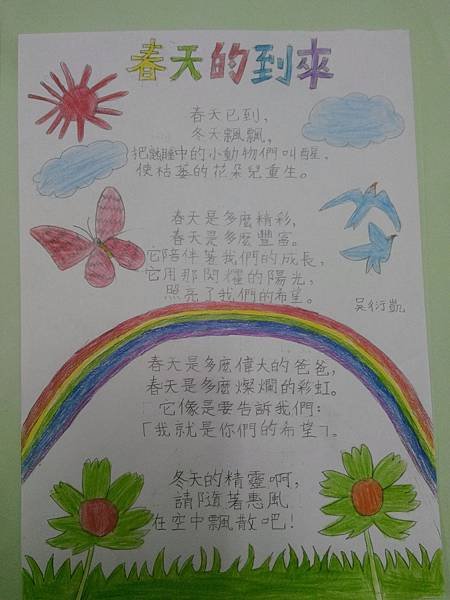 春天的到來
春天已到，
冬天飄飄，
把熟睡中的小動物們叫醒，
使枯萎的花朵兒重生。
春天是多麼精彩，
春天是多麼豐富。
它陪伴著我們的成長，
它用那閃耀的陽光，
照亮了我們的希望。
吳衍凱
春天是多麼偉大的爸爸，
春天是多麼燦爛的彩虹。
它像是要告訴我們：
「我就是你們的希望」。
冬天的精靈啊，
請隨著惠風
在空中飄散吧！